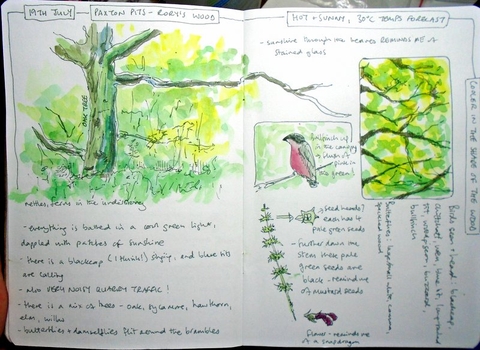 19TH JULY
PAXTON PITS - RORY'S WOOD
OAK TREE
nettles, ferns in the understorey
- everything is bathed in a cool green light,
dappled with patches of sunshine
- there is a blackcap (I think!), and blue tits
are calling
- also VERY NOISY QUARRY TRAFFIC!
- there is a mix of trees - oak, sycamore, hawthorn,
elm, willow
- butterflies + damselflies flit around the brambles
HOT + SUNNY, 30°C TEMPS FORECAST
- sunshine through the leaves REMINDS ME of
stained glass
bullfinch up
in the canopy
a blush of
pink in
the green!
seed heads?
each has 4
pale green seeds
- further down the
stem these pale
green seeds are
black - remind me
of mustard seeds
flower - reminds me
of a snapdragon
COOLER IN THE SHADE OF THE WOOD
Birds seen + heard: blackcap,
chiffchaff, wren, blue tit, long-tailed
tit, woodpigeon, buzzard,
bullfinch
Butterflies: large/small white, comma,
speckled wood